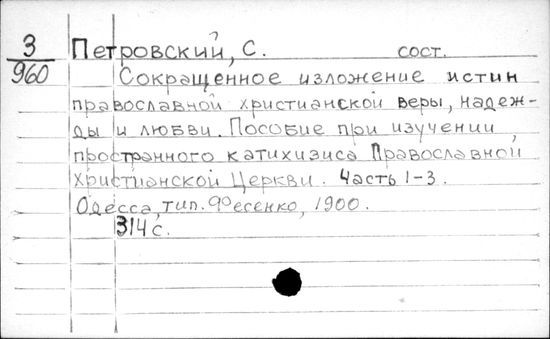 3 Петровский, С. сост.
960 Сокращенное изложение истин
православной христианской веры, надеж-
ды и любви. Пособие при изучении
пространного катихизиса Православной
Христианской Церкви. Часть 1-3.
Одесса, тип. Фесенко, 1900.
314 с.